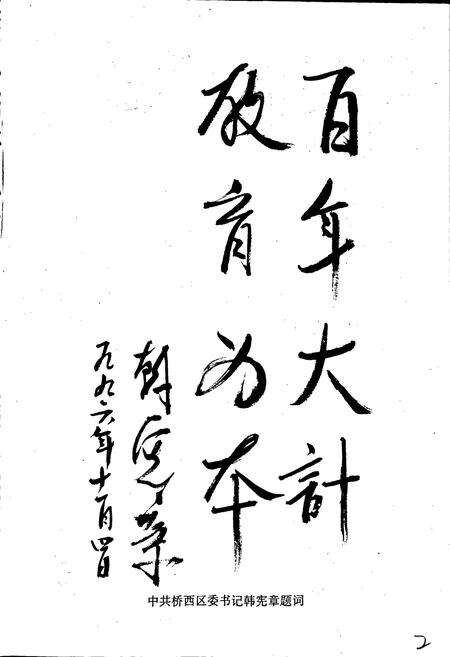 百年大計
教育为本
韩宪章
一九九六年十一月四日
中共桥西区委书记韩宪章题词
2